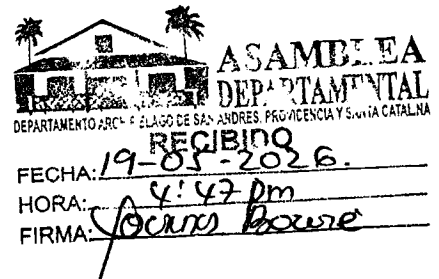 ASAMBLEA
DEPARTAMENTAL
DEPARTAMENTO ARCHIPIELAGO DE SAN ANDRES, PROVIDENCIA Y SANTA CATALINA
RECIBIDO
FECHA: 19-05-2026.
HORA: 4:47 pm
FIRMA: